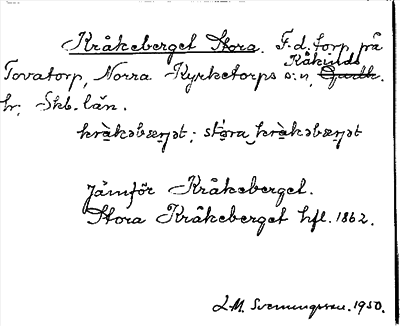 Kråkeberget Stora. F.d. torp på
Tovatorp, Norra Kyrketorps s:n, Kåkinds
hr, Skb. län.
kràkəbærjət; stóra kràkəbærjət
Jämför Kråkeberget.
Stora Kråkeberget hfl. 1862.
L.M. Svenungsson. 1950.